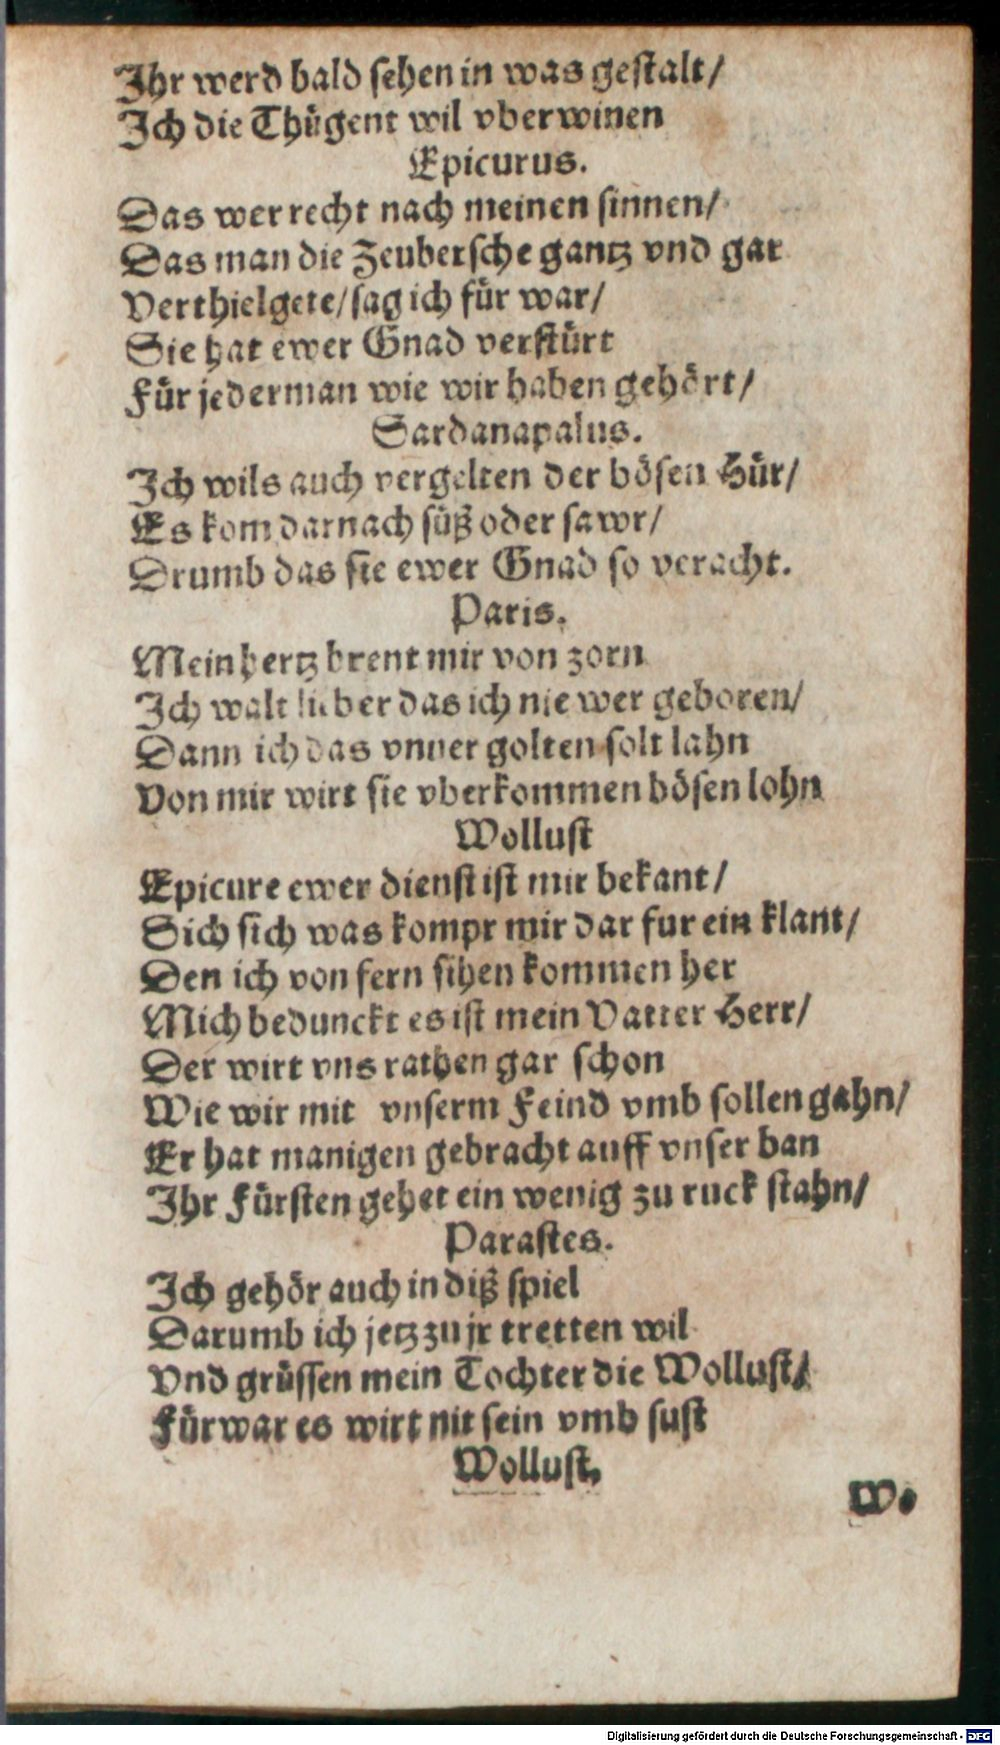 Ihr werd bald sehen in was gestalt/
Ich die Thügent wil vberwinen
Epicurus.
Das wer recht nach meinen sinnen/
Das man die Zeubersche gantz vnd gar
Verthielgete/sag ich für war/
Sie hat ewer Gnad verstürt
Für jederman wie wir haben gehört/
Sardanapalus.
Ich wils auch vergelten der bösen Hür/
Es kom darnach süß oder sawr/
Drumb das sie ewer Gnad so veracht.
Paris.
Mein hertz brent mir von zorn
Ich walt lieber das ich nie wer geboren/
Dann ich das vnuergolten solt lahn
Von mir wirt sie vberkommen bösen lohn
Wollust
Epicure ewer dienst ist mir bekant/
Sich sich was kompt mir dar fur ein klant/
Den ich von fern sihen kommen her
Mich bedunckt es ist mein Vatter Herr/
Der wirt vns rathen gar schon
Wie wir mit vnserm Feind vmb sollen gahn/
Er hat manigen gebracht auff vnser ban
Ihr Fürsten gehet ein wenig zu ruck stahn/
Parastes.
Ich gehör auch in diß spiel
Darumb ich jetz zu jr tretten wil
Vnd grüssen mein Tochter die Wollust/
Fürwar es wirt nit sein vmb sust
Wollust.
W.
Digitalisierung gefördert durch die Deutsche Forschungsgemeinschaft - DFG